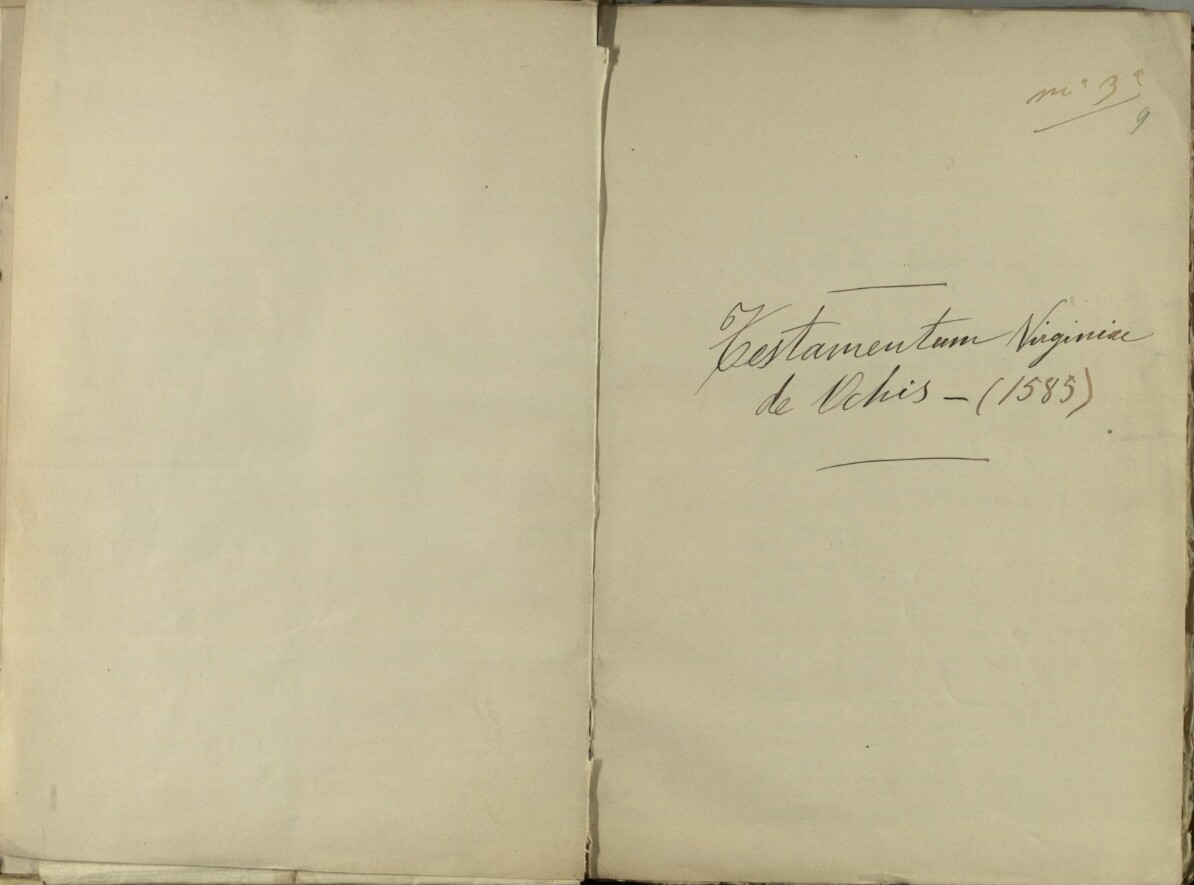 mª 3ª
9
Testamentum Virginiae
de Ochis – (1585)